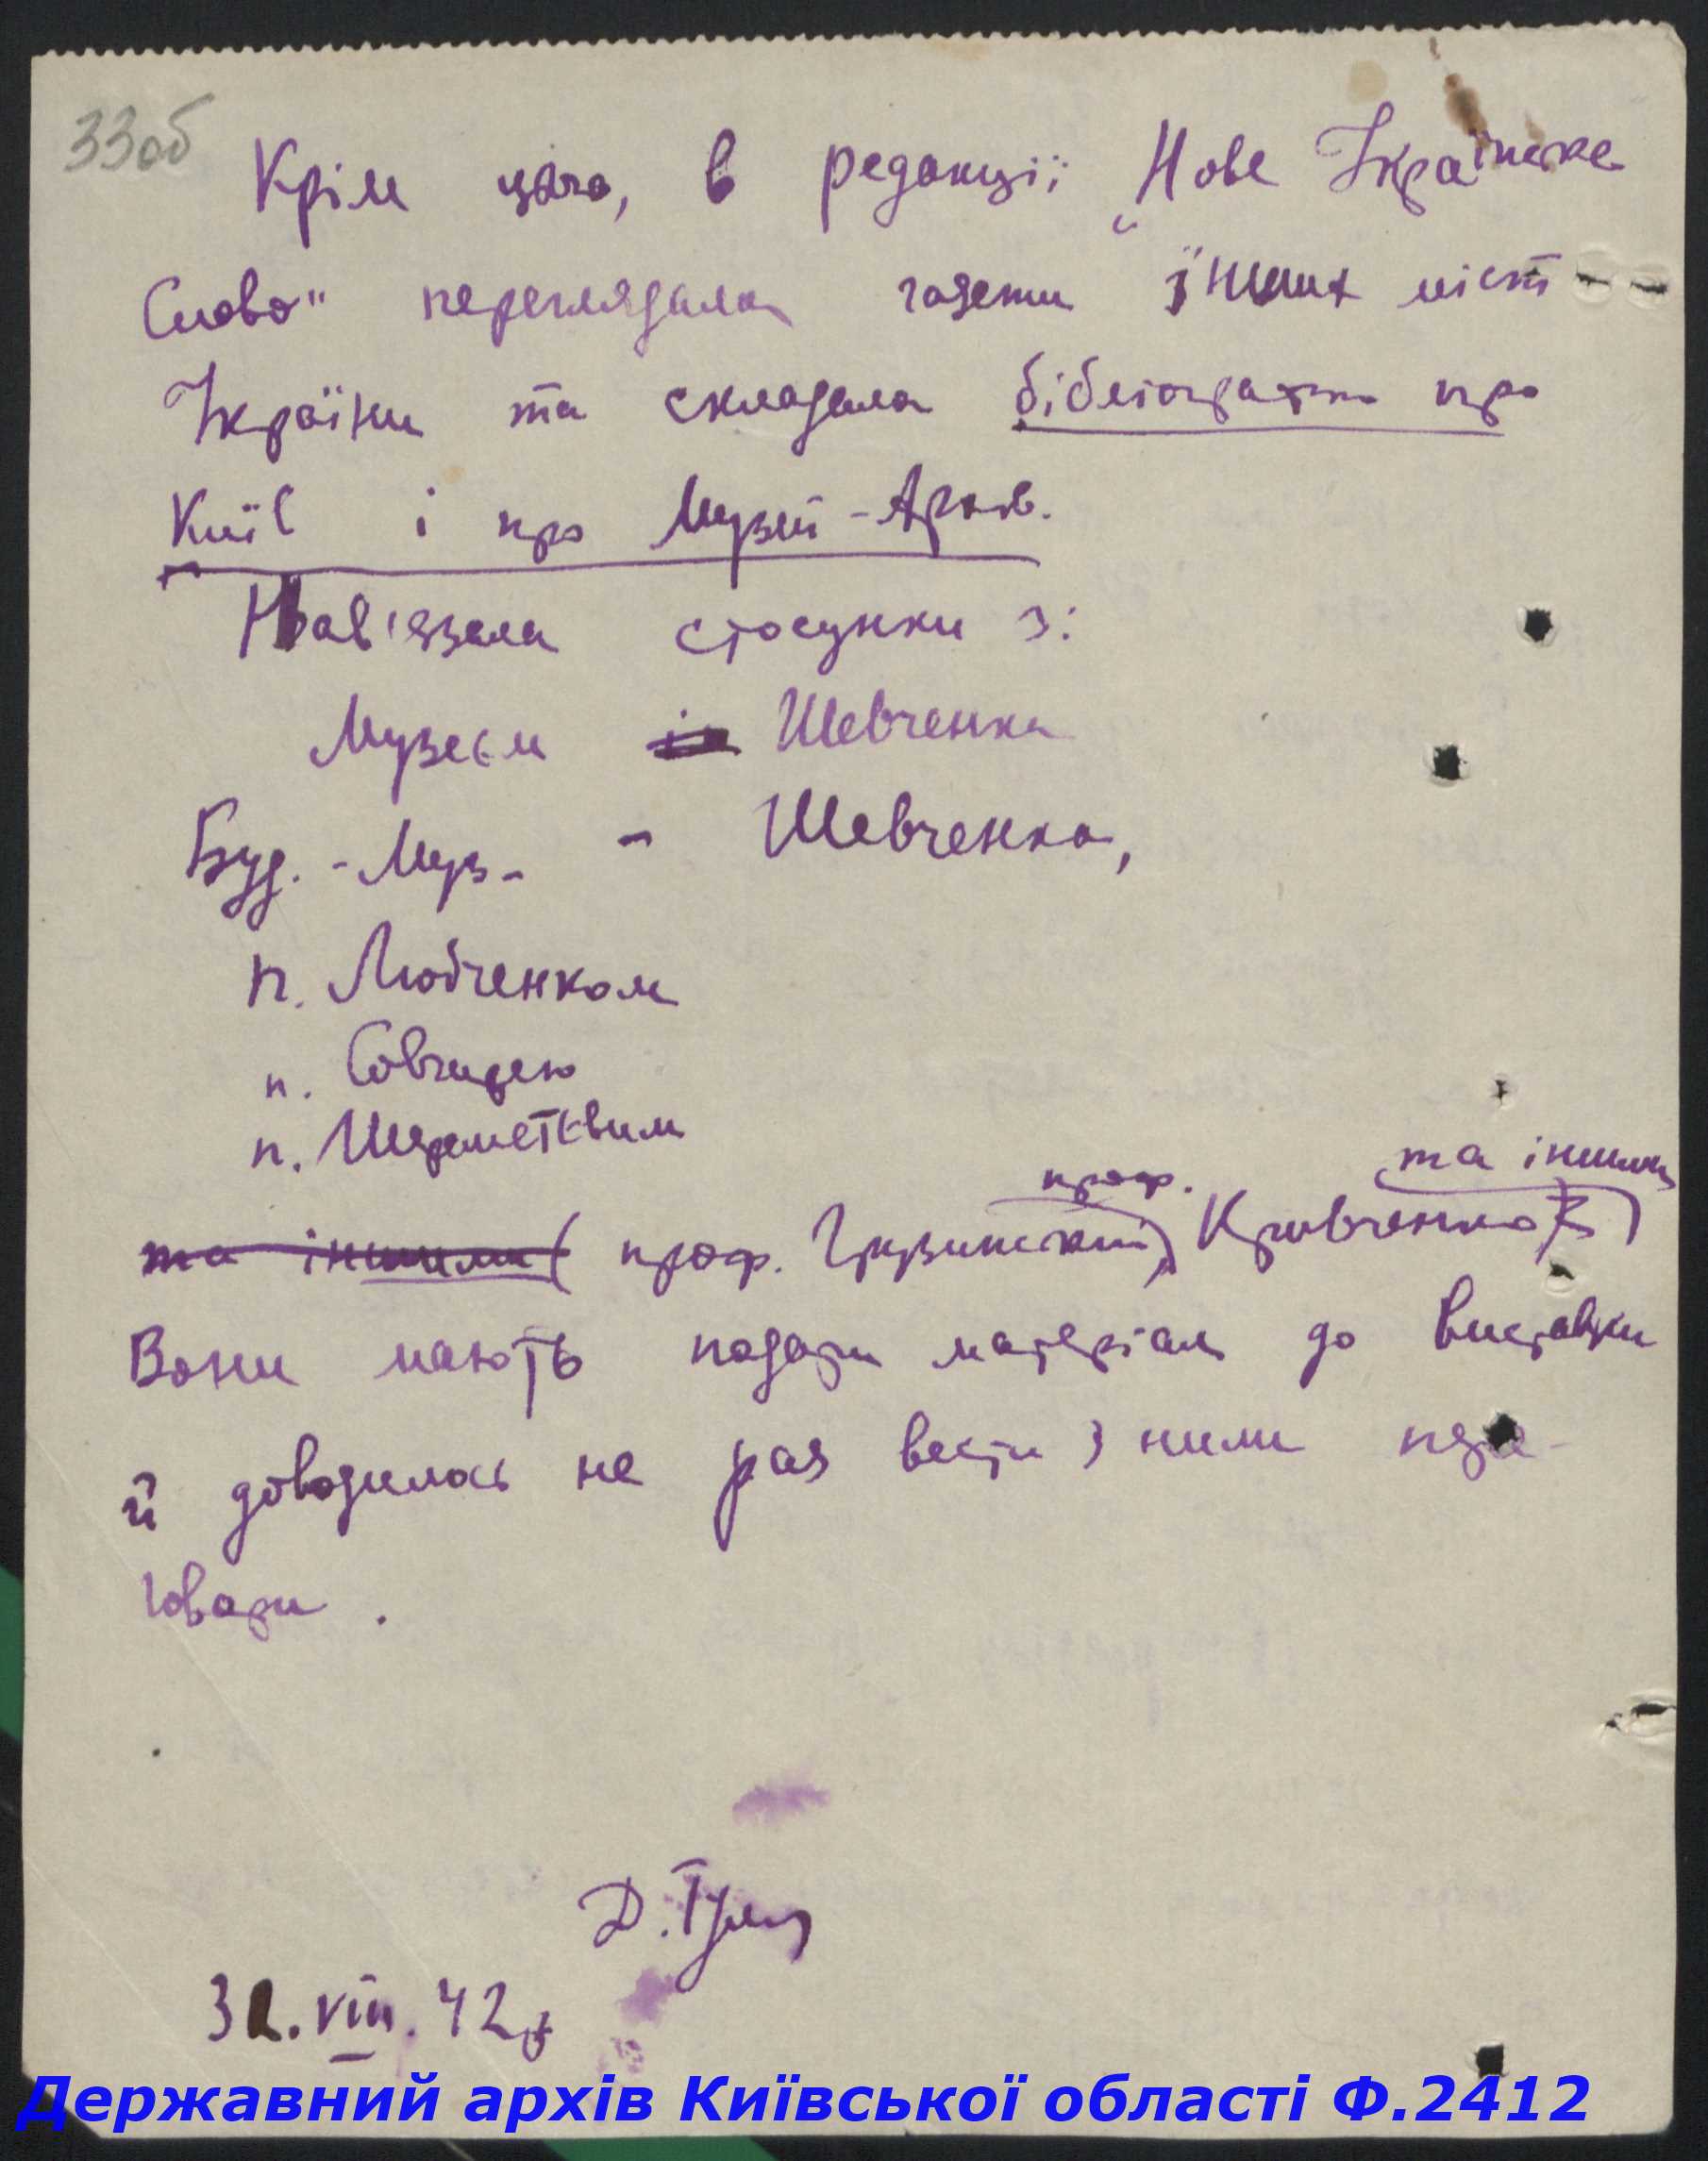 33об
Крім цього, в редакції „Нове Українське
Слово" переглядала газети інших міст
України та складала бібліографію про
Київ і про Музей-Архів.
Нав'язала стосунки з:
Музеєм Шевченка
Буд.-Муз. - Шевченка,
п. Любченком
п. Совчидею
п. Шереметєвим
проф. та іншими
та іншими ( проф. Грузинський, Кривченко)
Вони мають подати матеріали до виставки
й доводилось не раз вести з ними пере-
говори.
Д.
31.VIII.42р
Державний архів Київської області Ф.2412